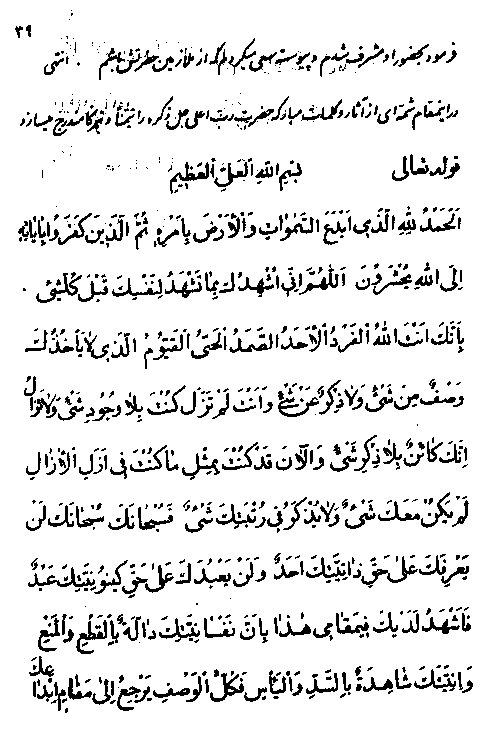 ٣٩
فرمود بحضور او مشرف شدم و پیوسته سعی میکردم که از ملازمین حضرتش باشم . انتهی
در اینمقام شمه‌ای از آثار و کلمات مبارکه حضرت رب اعلی جل ذکره را تیمناً و تبرکاً مندرج میسازد
قوله تعالی بِسْمِ اللهِ الْعَلِیِّ الْعَظِیمِ
اَلْحَمْدُ لِلّٰهِ الَّذِی اَبْدَعَ السَّمٰوٰاتِ وَالْاَرْضَ بِاَمْرِهِ ثُمَّ الَّذِینَ کَفَرُوا بِاٰیٰاتِهِ
اِلَی اللهِ یُحْشَرُونَ اَللّٰهُمَّ اِنِّی اُشْهِدُکَ بِمٰا تَشْهَدُ لِنَفْسِکَ قَبْلَ کُلِّشَیْءٍ .
بِاَنَّکَ اَنْتَ اللهُ الْفَرْدُ الْاَحَدُ الصَّمَدُ الْحَیُّ الْقَیُّومُ الَّذِی لٰا یَأْخُذُکَ
وَصْفٌ مِنْ شَیْءٍ وَلٰا ذِکْرٌ عَنْ شَیْءٍ وَاَنْتَ لَمْ تَزَلْ کُنْتَ بِلٰا وُجُودِ شَیْءٍ وَلٰا تَزٰالُ
اِنَّکَ کٰائِنٌ بِلٰا ذِکْرِ شَیْءٍ وَالْاٰنَ قَدْ کُنْتَ بِمِثْلِ مٰا کُنْتَ فِی اَزَلِ الْاٰزٰالِ
لَمْ یَکُنْ مَعَکَ شَیْءٌ وَلٰا یُذْکَرُ فِی رُتْبَتِکَ شَیْءٌ فَسُبْحٰانَکَ سُبْحٰانَکَ لَنْ
یَعْرِفَکَ عَلٰی حَقِّ ذٰاتِیَّتِکَ اَحَدٌ وَلَنْ یَعْبُدَکَ عَلٰی حَقِّ کَیْنُونِیَّتِکَ عَبْدٌ
فَاَشْهَدُ لَدَیْکَ فِیمَقٰامِی هٰذٰا بِاَنَّ نَفْسٰانِیَّتَکَ دٰالَّةٌ بِالْقَطْعِ وَالْمَنْعِ
وَاِنِّیَّتَکَ شٰاهِدَةٌ بِالسَّدِّ وَالْیَأْسِ فَکُلُّ الْوَصْفِ یَرْجِعُ اِلٰی مَقٰامِ اِبْدٰاعِکَ